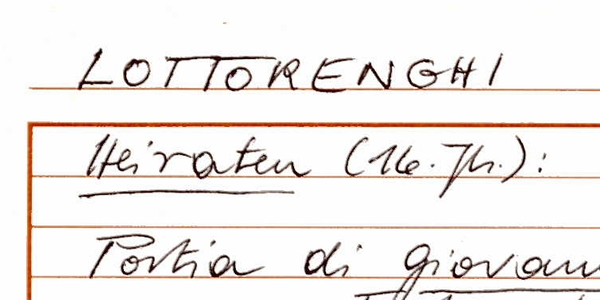 LOTTORENGHI
Heiraten (16. Jh.):
Portia di Giovan